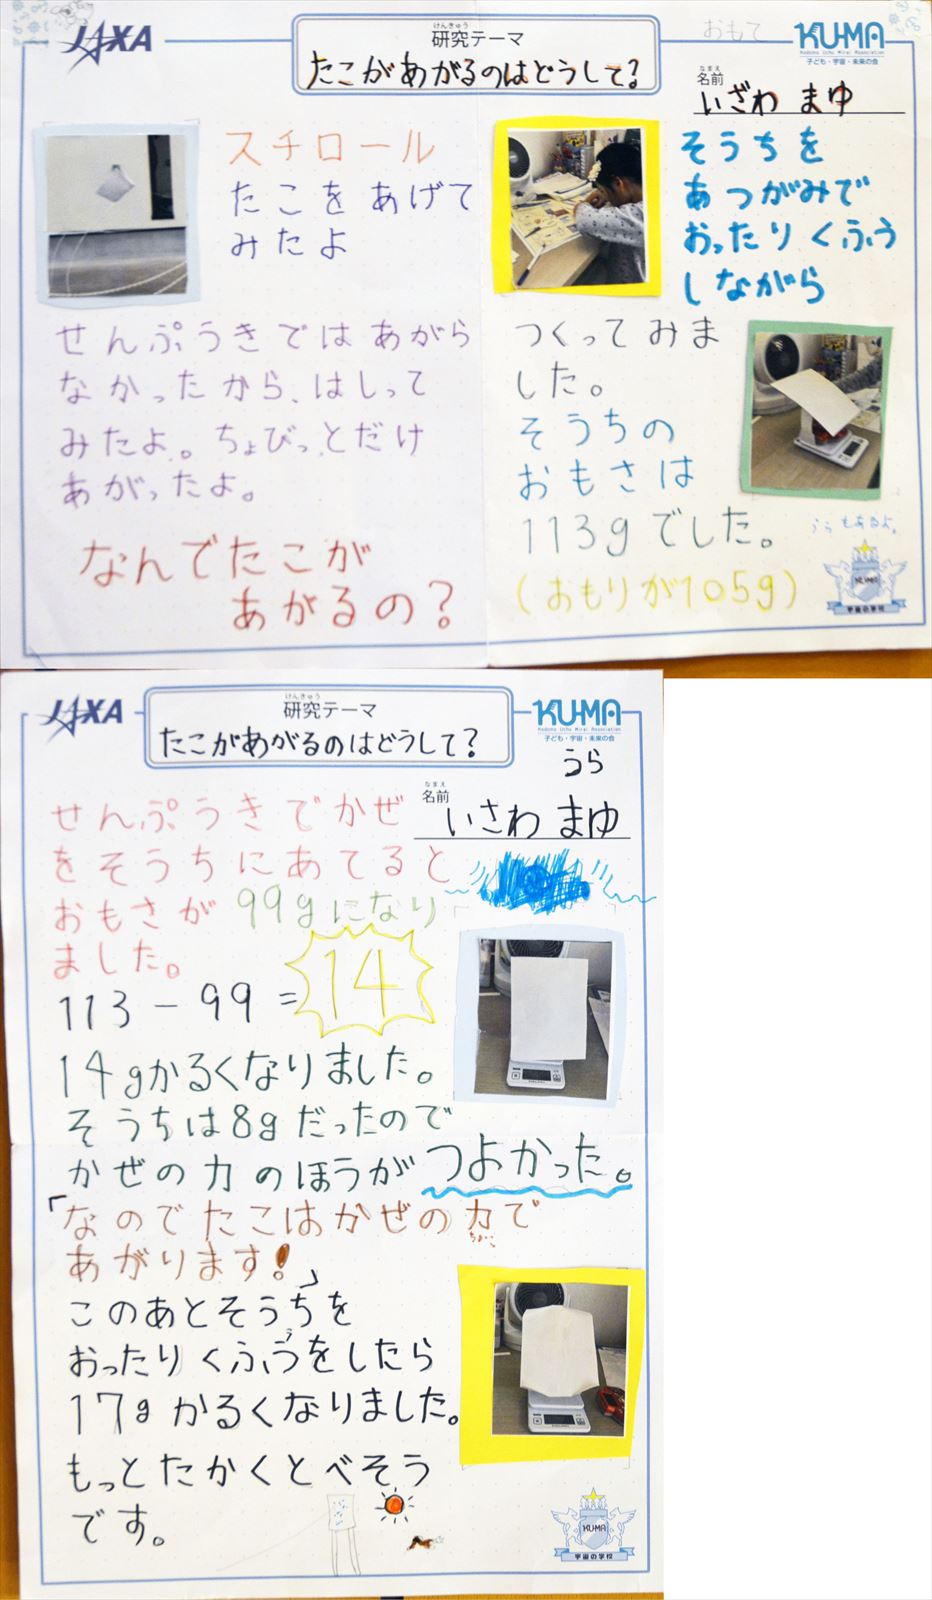 JAXA
けんきゅう
研究テーマ
たこがあがるのはどうして?
おもて
KU-MA
Kodomo Uchu Mirai Association
子ども・宇宙・未来の会
なまえ
名前
いざわ まゆ
スチロール
たこをあげて
みたよ
せんぷうきではあがら
なかったから、はしって
みたよ。ちょびっとだけ
あがったよ。
なんでたこが
あがるの?
そうちを
あつがみで
おったりくふう
しながら
つくってみま
した。
そうちの
おもさは
113gでした。
(おもりが105g)
うらもあるよ。
KU-MA
宇宙の学校
JAXA
けんきゅう
研究テーマ
たこがあがるのはどうして?
KU-MA
Kodomo Uchu Mirai Association
子ども・宇宙・未来の会
うら
なまえ
名前
いさわ まゆ
せんぷうきでかぜ
をそうちにあてると
おもさが99gになり
ました。
113-99=14
14gかるくなりました。
そうちは8gだったので
かぜの力のほうがつよかった。
「なのでたこはかぜの力で
ちから
あがります!」
このあとそうちを
おったりくふうをしたら
17gかるくなりました。
もっとたかくとべそう
です。
KU-MA
宇宙の学校